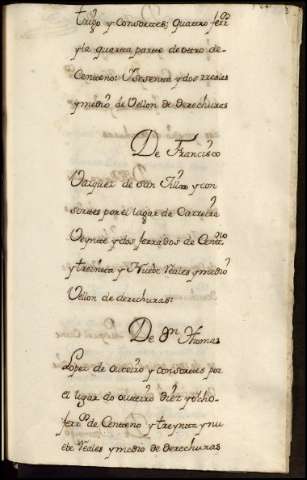 trigo y Consortes; quattro ferr.s
y la quarta parte de otro de
Centteno: Y sesentta y dos rreales
y medio de Vellon de derechuras
De Francisco
Vazquez de san y con
sortes por el lugar de
Veynte y dos ferrados de Centt.no
y treintta y Nuebe Reales y medio
Vellon de derechuras:
De D.n Thomas
Lopez de outeiro y consortes por
el lugar do outteiro diez y ocho
ferr.s de Centteno y treyntta y nu
ebe Reales y medio de Derechuras